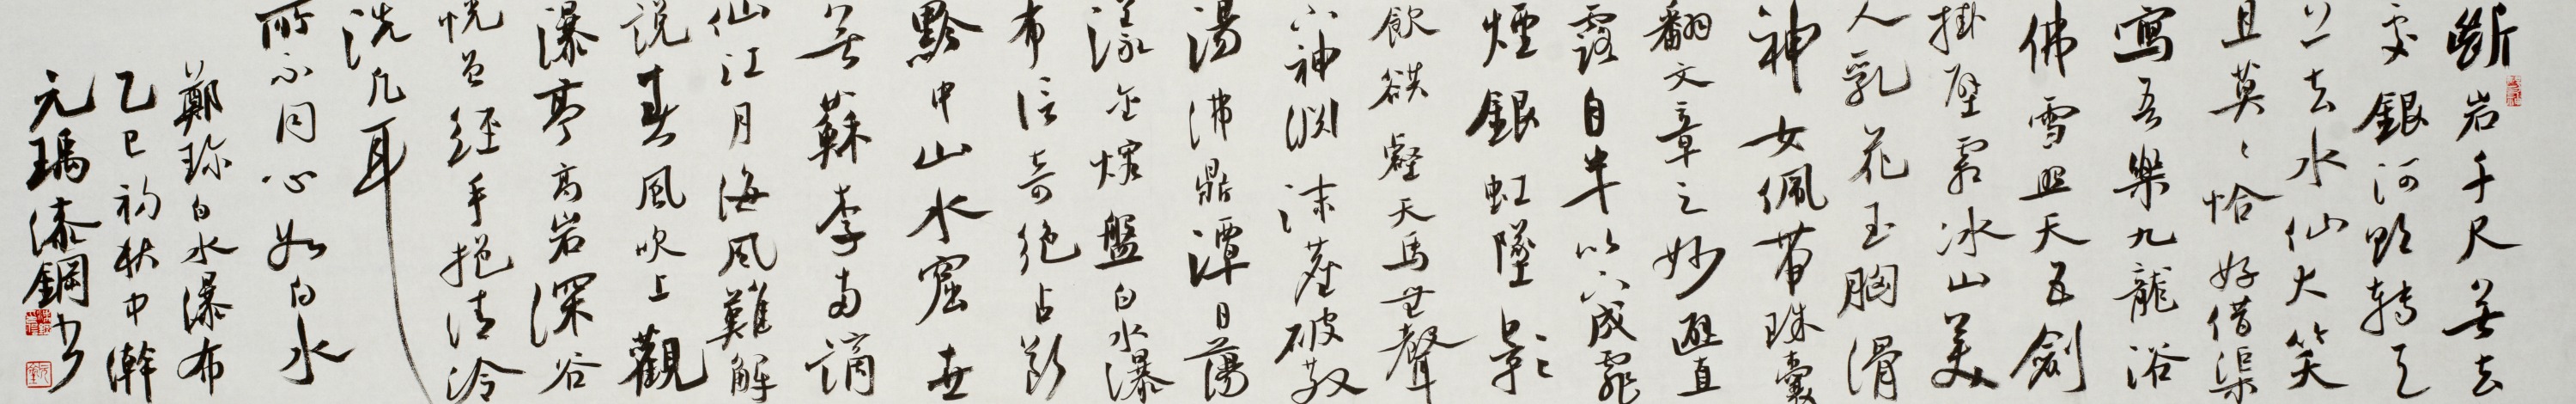 斷岩千尺無去
處銀河欲轉天
上去水仙大笑
且莫〻恰好借渠
寫吾樂九龍浴
佛雪照天五劍
掛壁霜冰山美
人乳花玉胸滑
神女佩帶珠囊
翻文章之妙避直
露自半以下成霏
煙銀虹墜影
飲谼壑天馬無聲
下神淵沫塵破散
湯沸鼎潭日蕩
漾金熔盤白水瀑
布信奇絕占斷
黔中山水窟世
無蘇李兩謫
仙江月海風難解
說春風吹上觀
瀑亭高岩深谷
恍曾經手挹清泠
洗凡耳
所不同心如白水
鄭珍白水瀑布
乙巳初秋中澣
元瑀漆鋼書